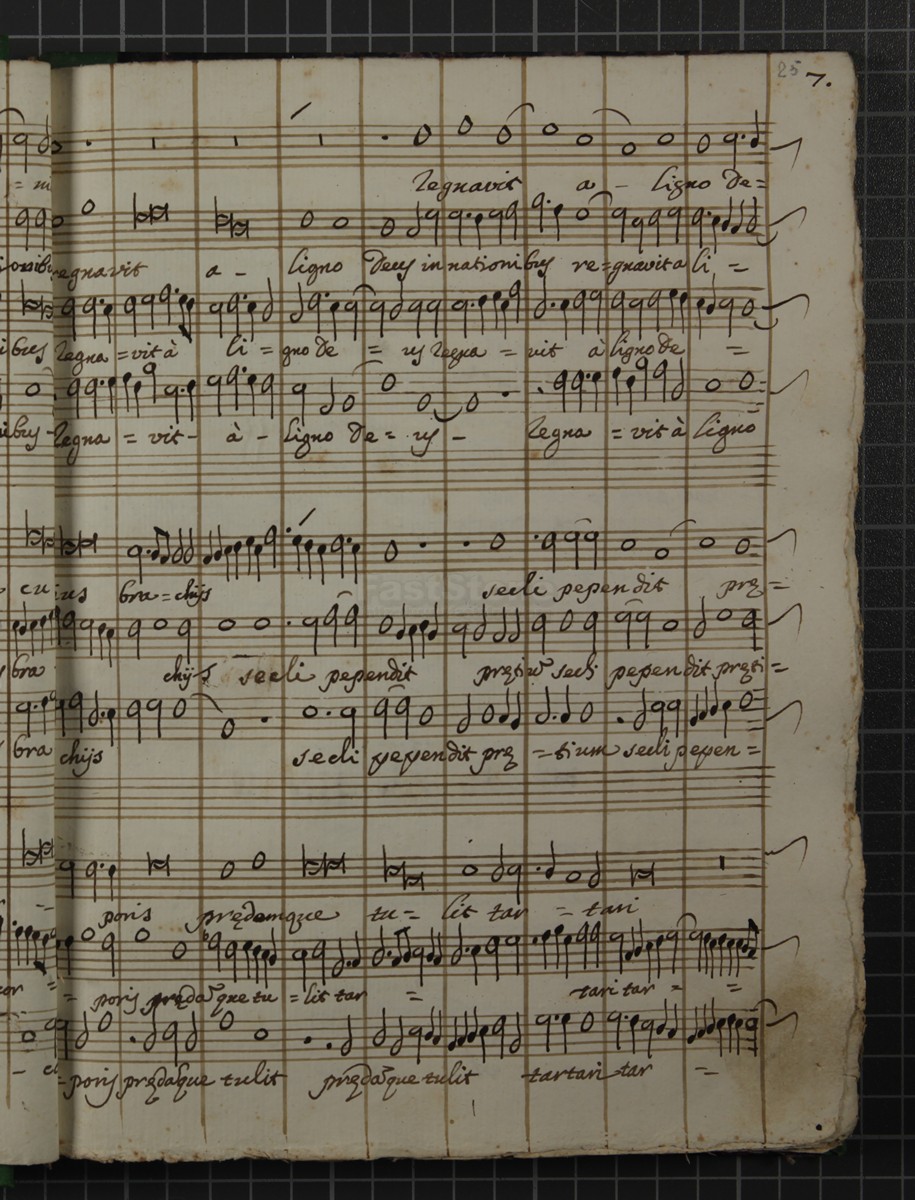 25 7.
= ni regnavit a - ligno De=
regnavit a - ligno Deus in nationibus re=gnavit a li =
ibus regna = vit à li = gno De = us regna = vit à ligno de =
regna = vit - à - ligno De = us - regna = vit à ligno
cuius bra = chijs secli pependit prę =
bra chijs secli pependit pręti secli pependit pręti =
bra chijs secli pependit prę = tium secli pepen =
poris prędamque tu = lit tar = tari
= poris prędãque tu = lit tar = tari tar = =
= poris prędãque tulit prędãque tulit tartari tar =